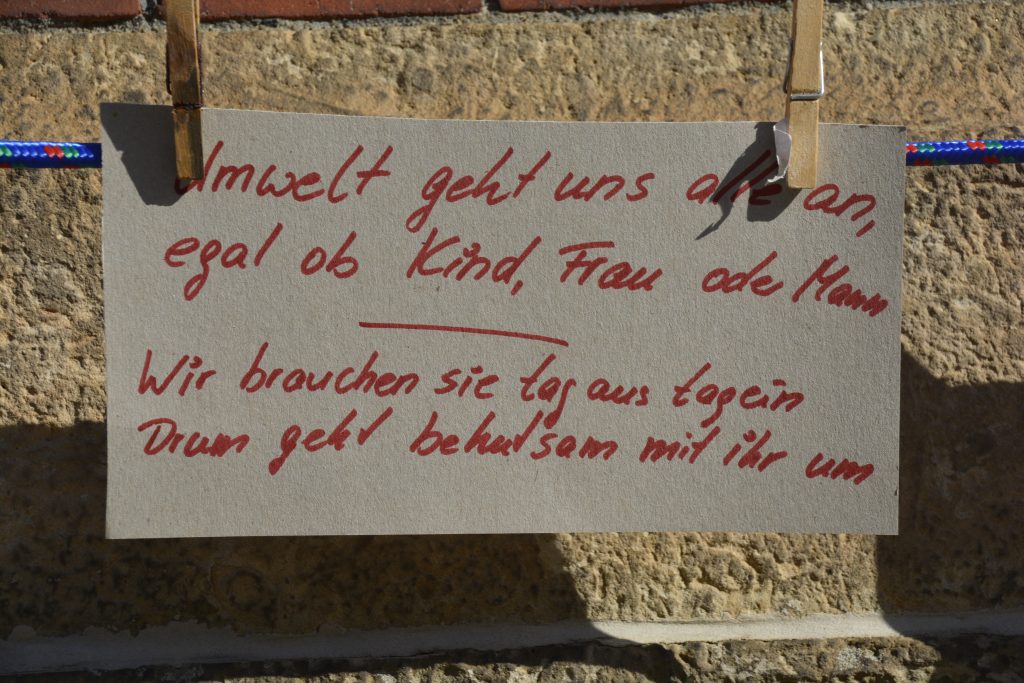 Umwelt geht uns alle an,
egal ob Kind, Frau oder Mann
Wir brauchen sie tag aus tagein
Drum geht behutsam mit ihr um